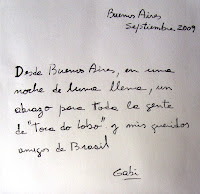 Buenos Aires
Septiembre 2009
Desde Buenos Aires, en una
noche de luna llena, un
abrazo para toda la gente
de "Toca do lobo" y mis queridos
amigos de Brasil
Gabi